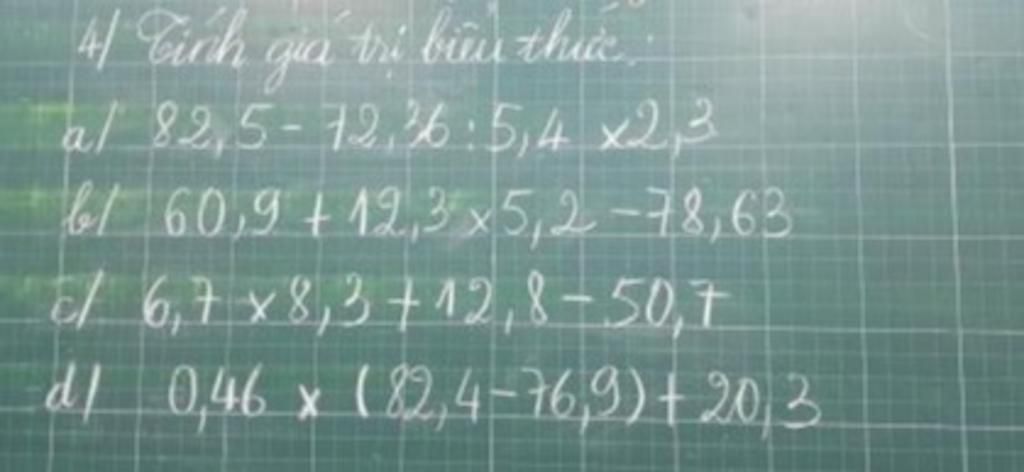 4/ Tính giá trị biểu thức:
a/ 82,5 - 72,36 : 5,4 x 2,3
b/ 60,9 + 12,3 x 5,2 - 78,63
c/ 6,7 x 8,3 + 12,8 - 50,7
d/ 0,46 x (82,4 - 76,9) + 20,3